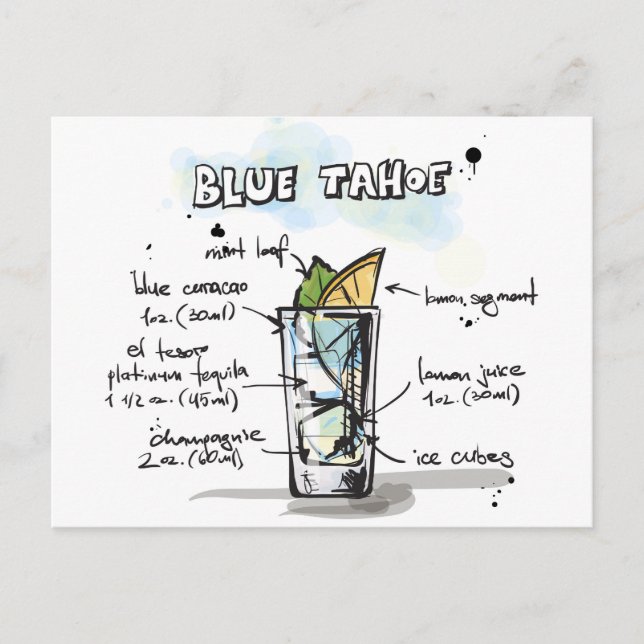 BLUE TAHOE
mint leaf
blue curacao
1oz. (30ml)
lemon segment
el tesoro
platinum tequila
1 1/2 oz. (45ml)
lemon juice
1oz. (30ml)
champagne
2 oz. (60ml)
ice cubes